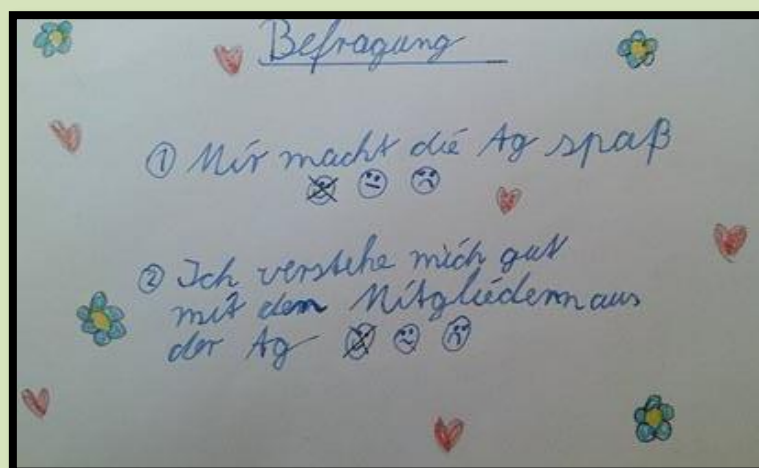 Befragung
① Mir macht die Ag spaß
② Ich verstehe mich gut
mit den Mitgliedern aus
der Ag